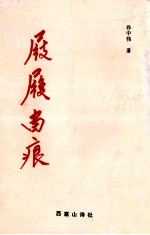 孙中伟 著
屐履留痕
西塞山诗社